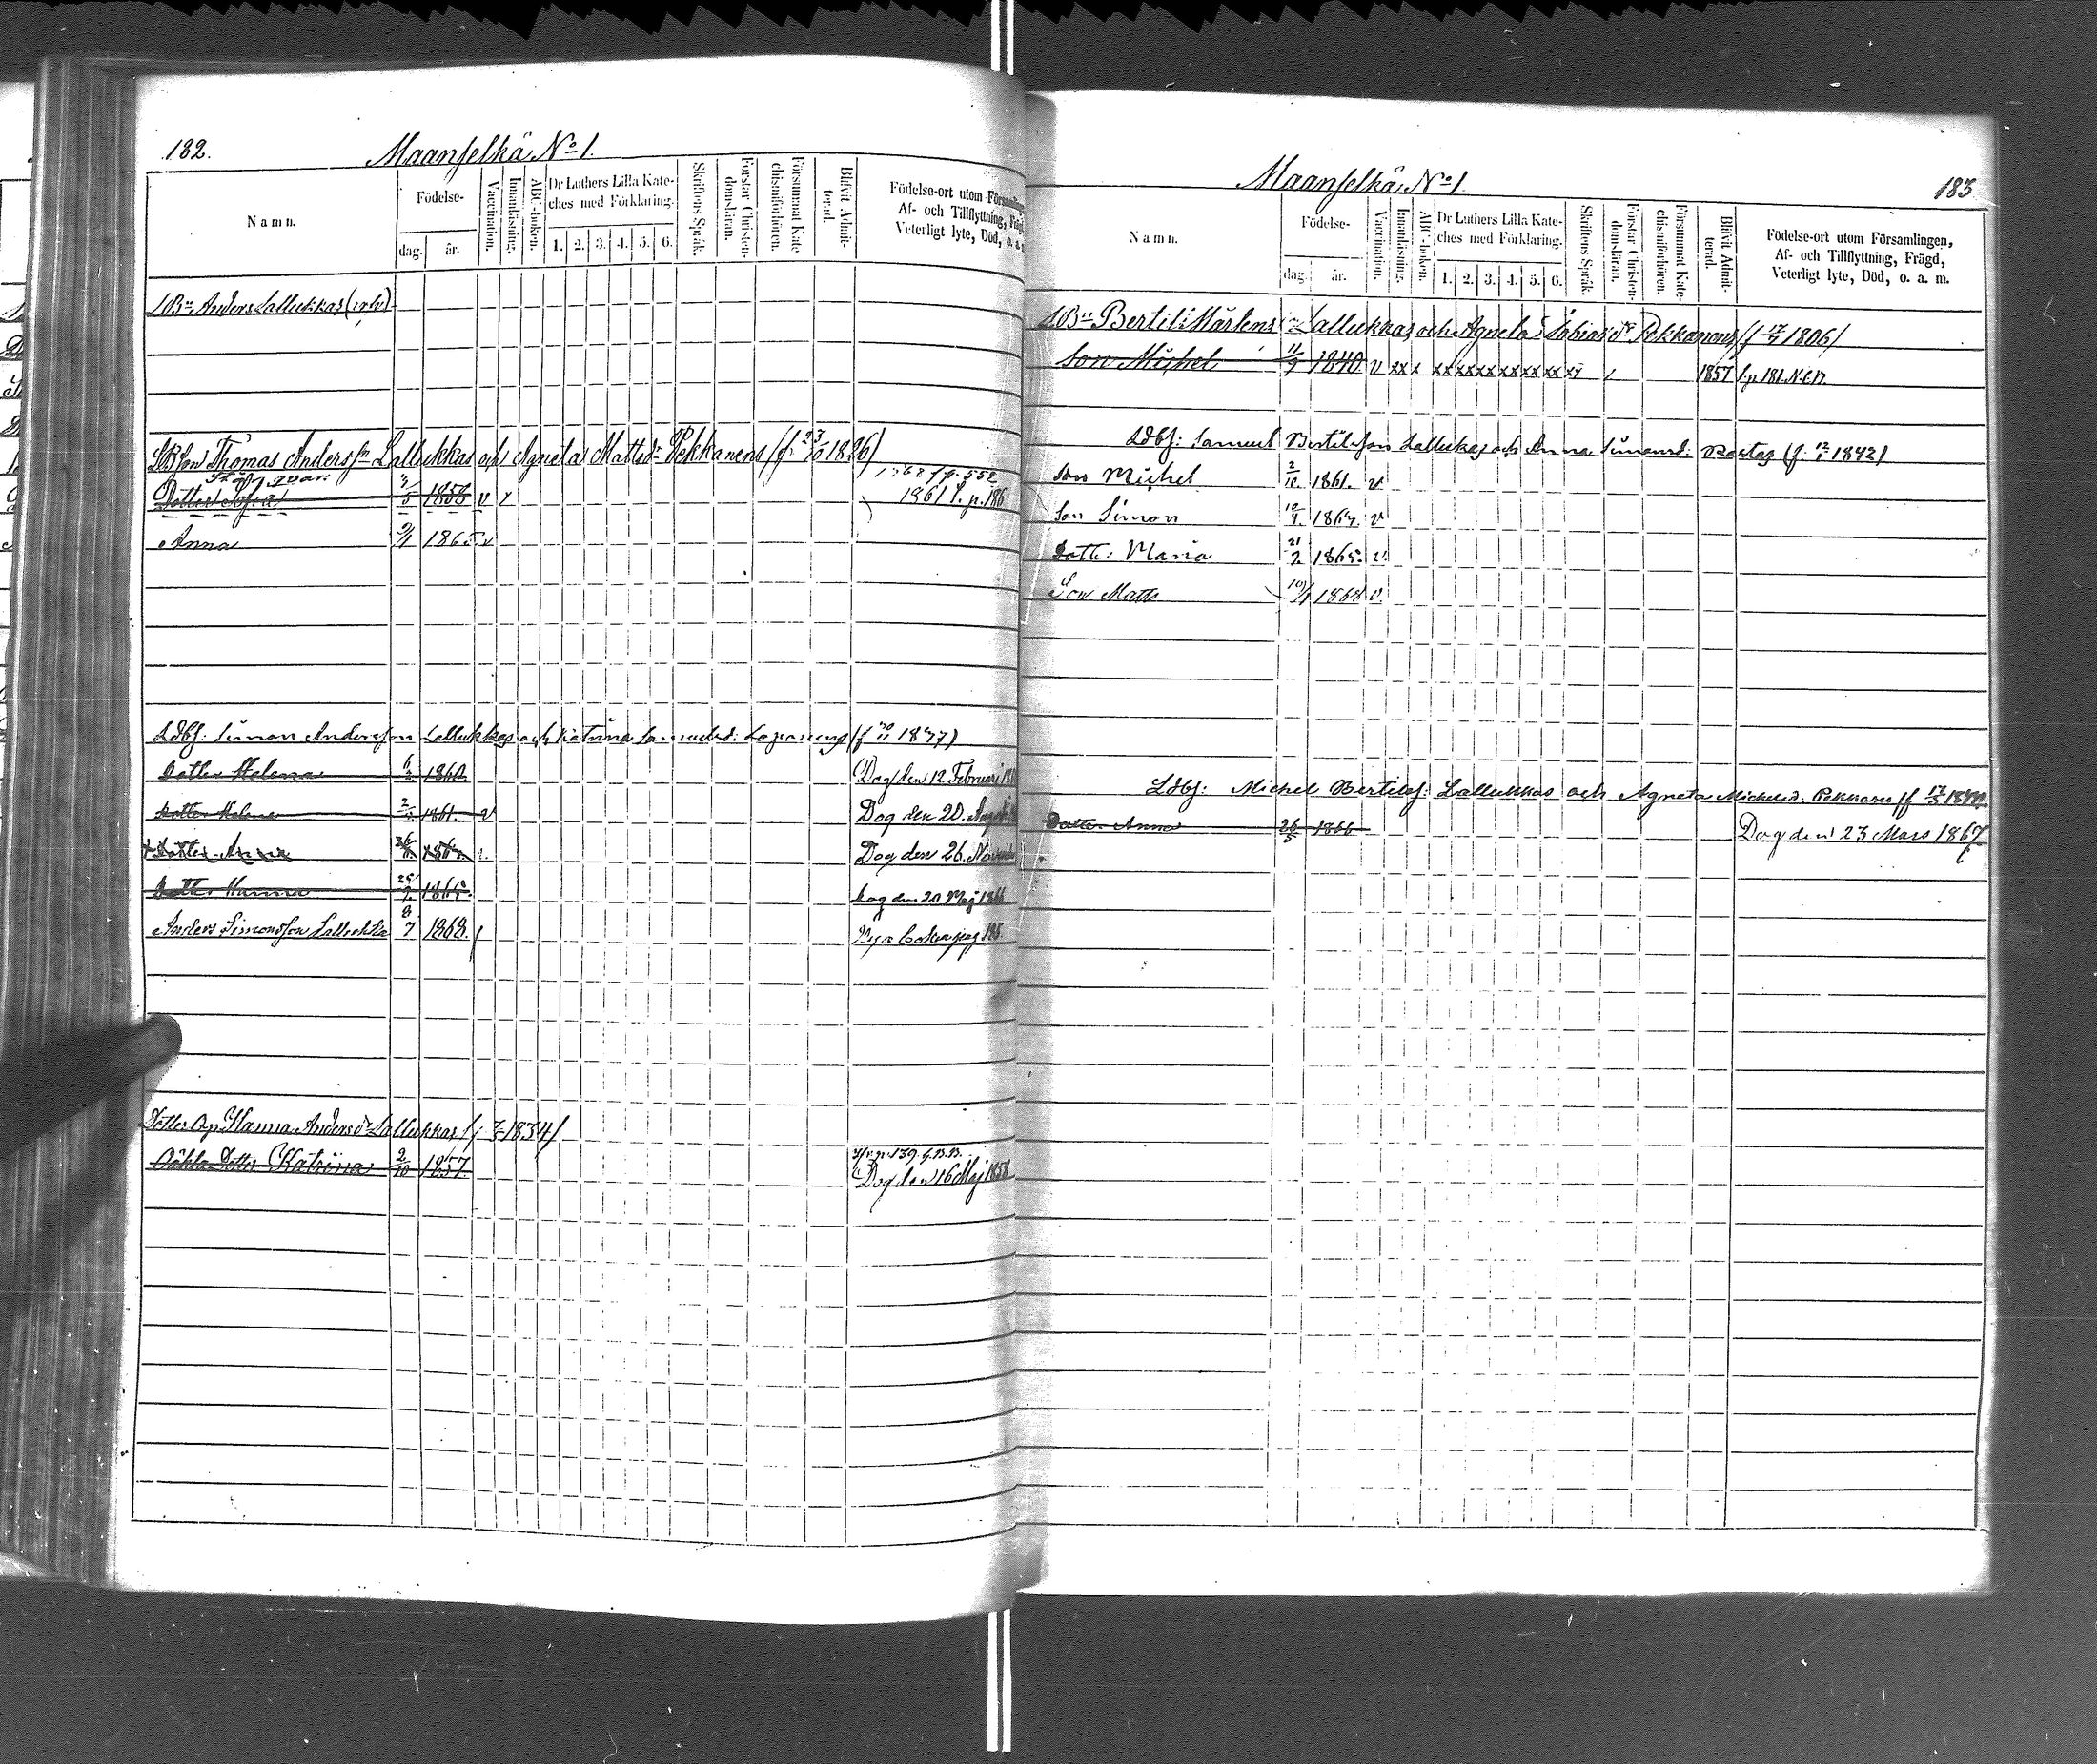 182.
Maanselkä, No 1.
Namn.
Födelse-
dag. år.
Vaccination.
Innanläsning.
ABC-boken.
Dr Luthers Lilla Kate-
ches med Förklaring.
1. 2. 3. 4. 5. 6.
Skriftens Språk.
Förstår Christen-
domsläran.
Försummat Kate-
chismiförhören.
Blifvit Admit-
terad.
Födelse-ort utom Församlingen,
Af- och Tillflyttning, Frägd,
Veterligt lyte, Död, o. a. m.
Anders Lallukkas
Thomas Anders sn Lallukkas och Agneta Matts dr Pekkanens (f. 23/10 1826)
Dotter Sofia 1856 v x 1861 f. p. 186
Anna 9/1 1865 v
Ldbs: Simon Andersson Lallukkas och Katrina Samuelsd: (f 30/11 1837)
Dotter Helena 6/2 1860 Dog den 12 Februari
Dotter Helena 1861 v Dog den 20.
Dotter Anna Dog den 26.
Dotter Hanna 1865. Dog den 20 Maj 1866
Anders Simonsson Lallukka 8/7 1868. Nya boken pag
Hanna Anders dr Lallukkas 1834
Oäkta Dotter Katrina 2/10 1857. Dog den 16 Maj 1858
Maanselkä, No 1.
183.
Namn.
Födelse-
dag. år.
Vaccination.
Innanläsning.
ABC-boken.
Dr Luthers Lilla Kate-
ches med Förklaring.
1. 2. 3. 4. 5. 6.
Skriftens Språk.
Förstår Christen-
domsläran.
Försummat Kate-
chismiförhören.
Blifvit Admit-
terad.
Födelse-ort utom Församlingen,
Af- och Tillflyttning, Frägd,
Veterligt lyte, Död, o. a. m.
Bertil Mårtens sn Lallukkas och Agneta Tobias dr Pekkanens (f 17/7 1806)
Son Michel 11/9 1840 v xx x xx xx xx xx xx xx 1857 f. p 181.
Ldbs: Samuel Bertilsson Lallukkas och Anna Simonsd: (f. 1842)
Son Michel 2/10 1861. v
Son Simon v
Dotter: Maria 21/2 1865. v
Son Matts 10/1 1868 v.
Ldbs: Michel Bertilss: Lallukkas och Agneta Michelsd. Pekkanen
Dotter Anna 26/5 1866 Dog den 23 Mars 1867.